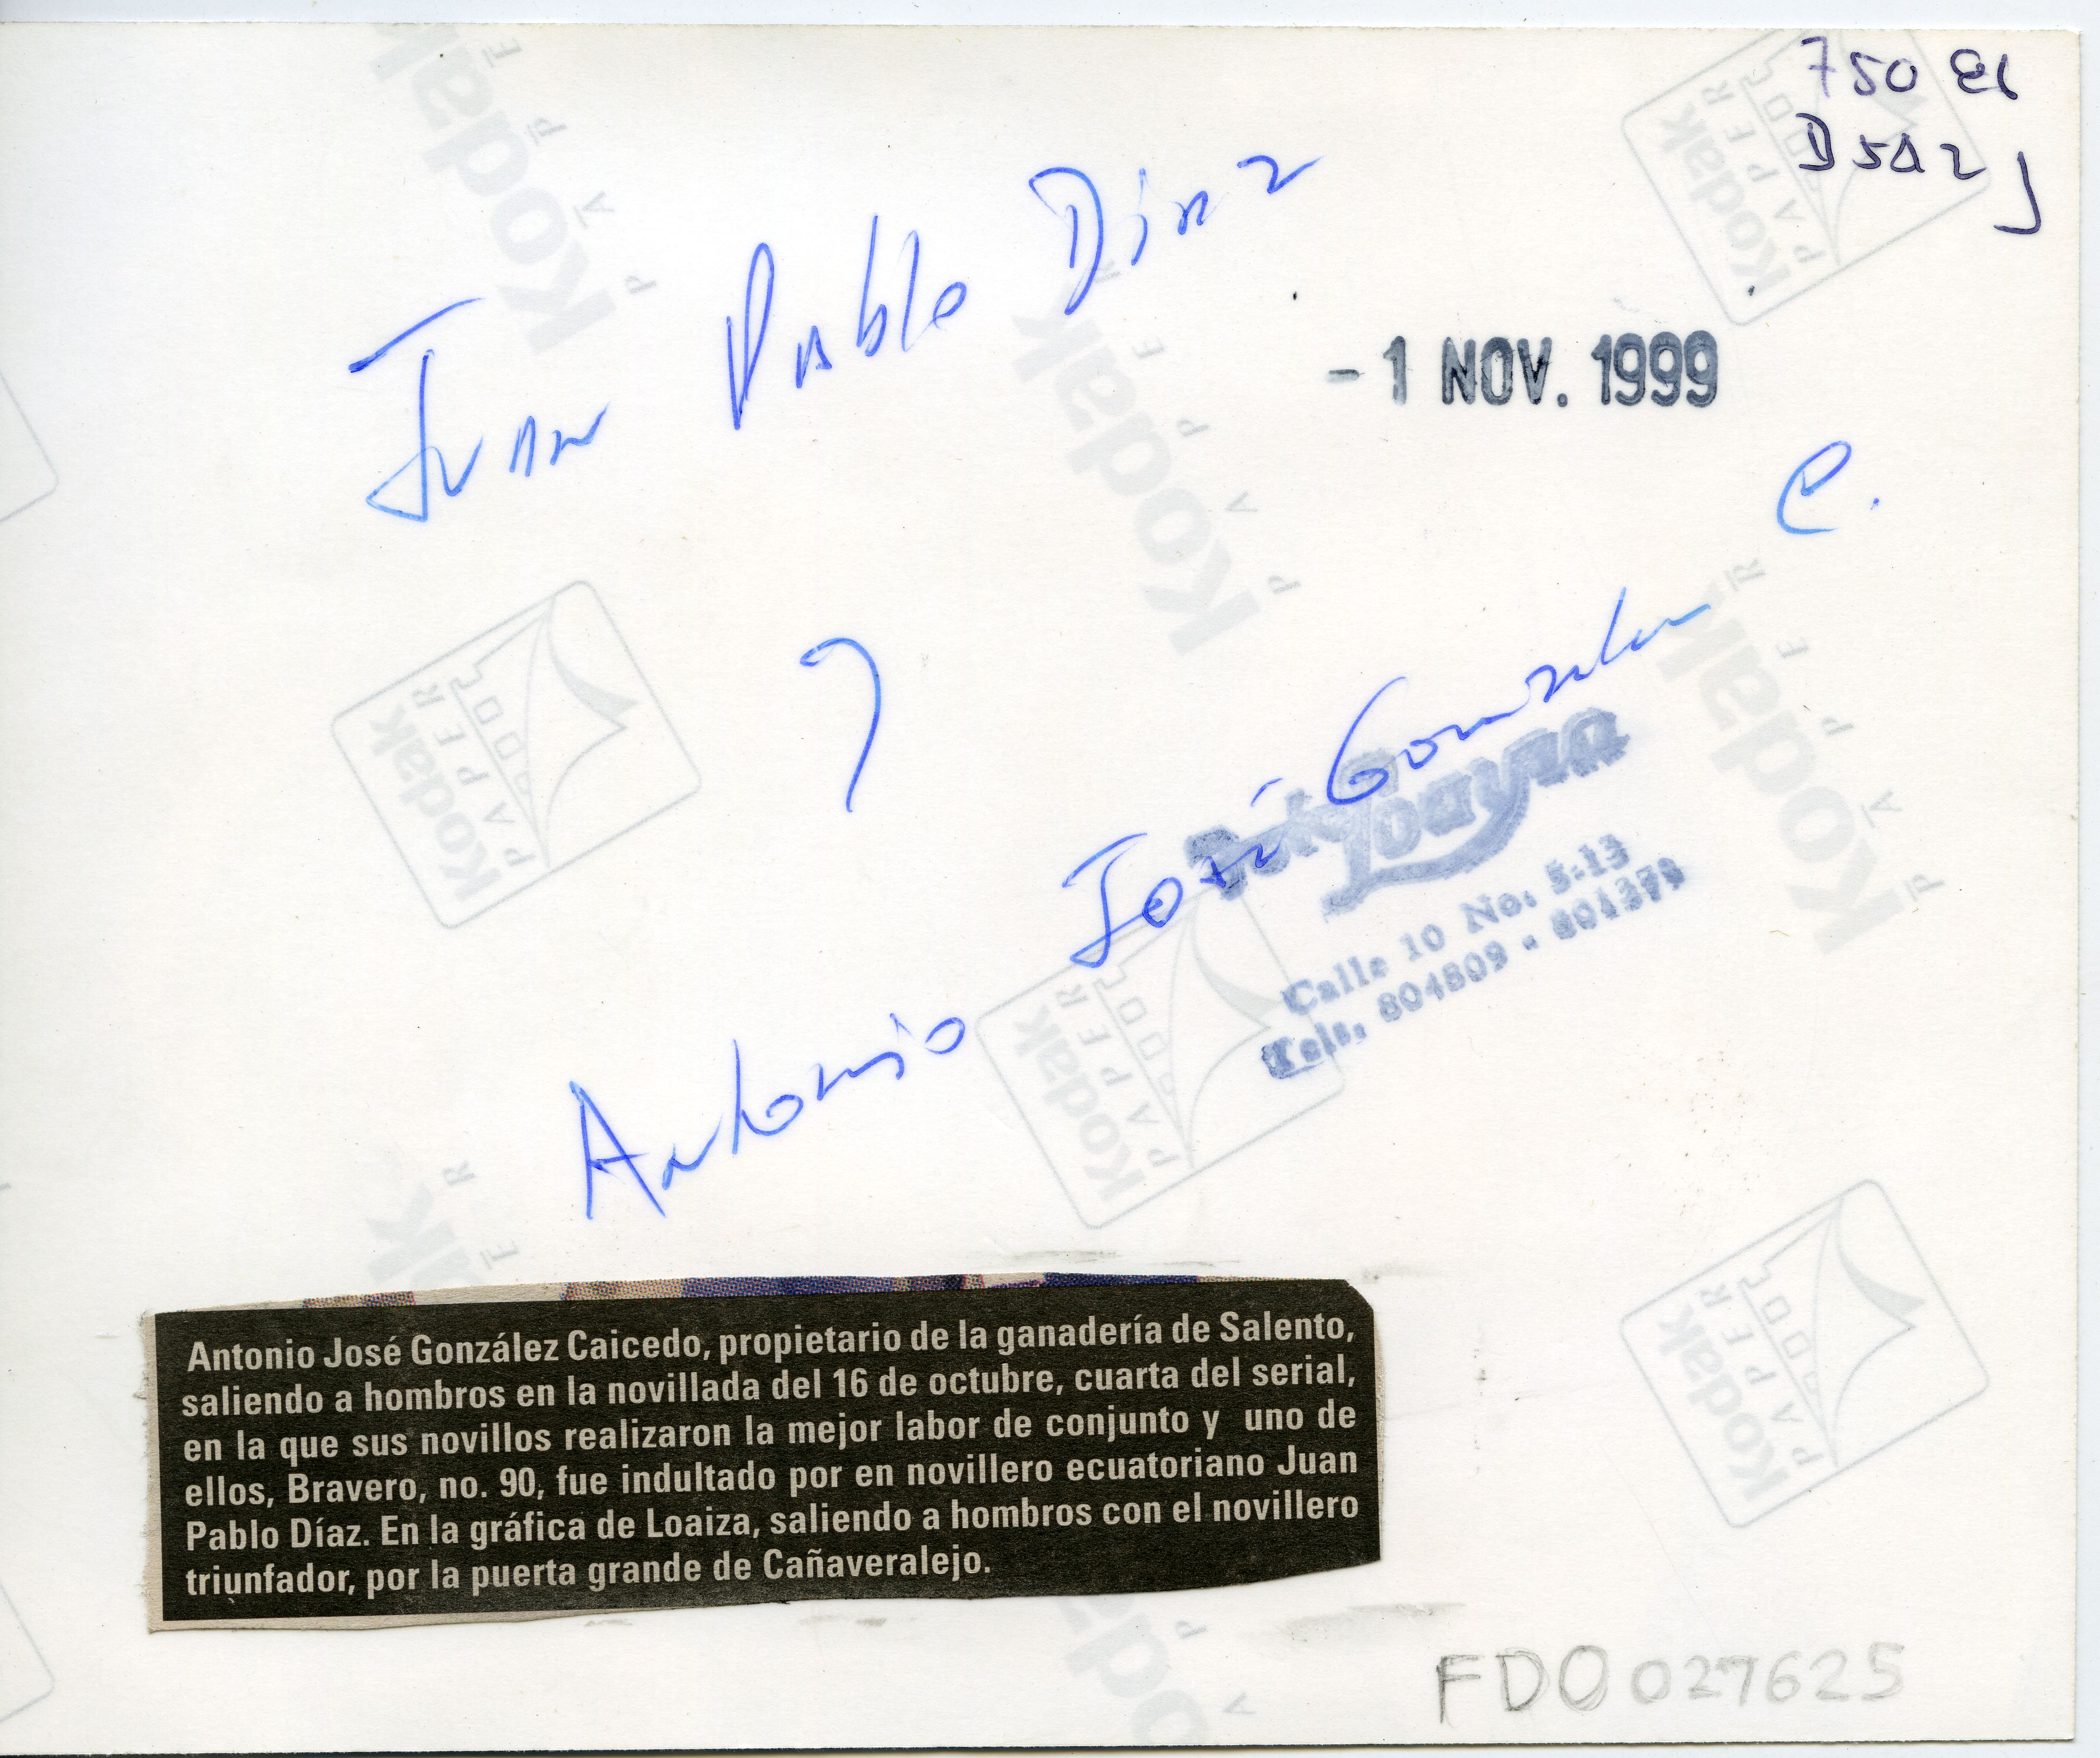 750 El
D5A2J
Juan Pablo Díaz
- 1 NOV. 1999
y
Antonio José González C.
Foto Loayza
Calle 10 No. 5-13
Tels. 804809 - 801379
Antonio José González Caicedo, propietario de la ganadería de Salento,
saliendo a hombros en la novillada del 16 de octubre, cuarta del serial,
en la que sus novillos realizaron la mejor labor de conjunto y uno de
ellos, Bravero, no. 90, fue indultado por en novillero ecuatoriano Juan
Pablo Díaz. En la gráfica de Loaiza, saliendo a hombros con el novillero
triunfador, por la puerta grande de Cañaveralejo.
FDO 027625
Kodak
PAPER